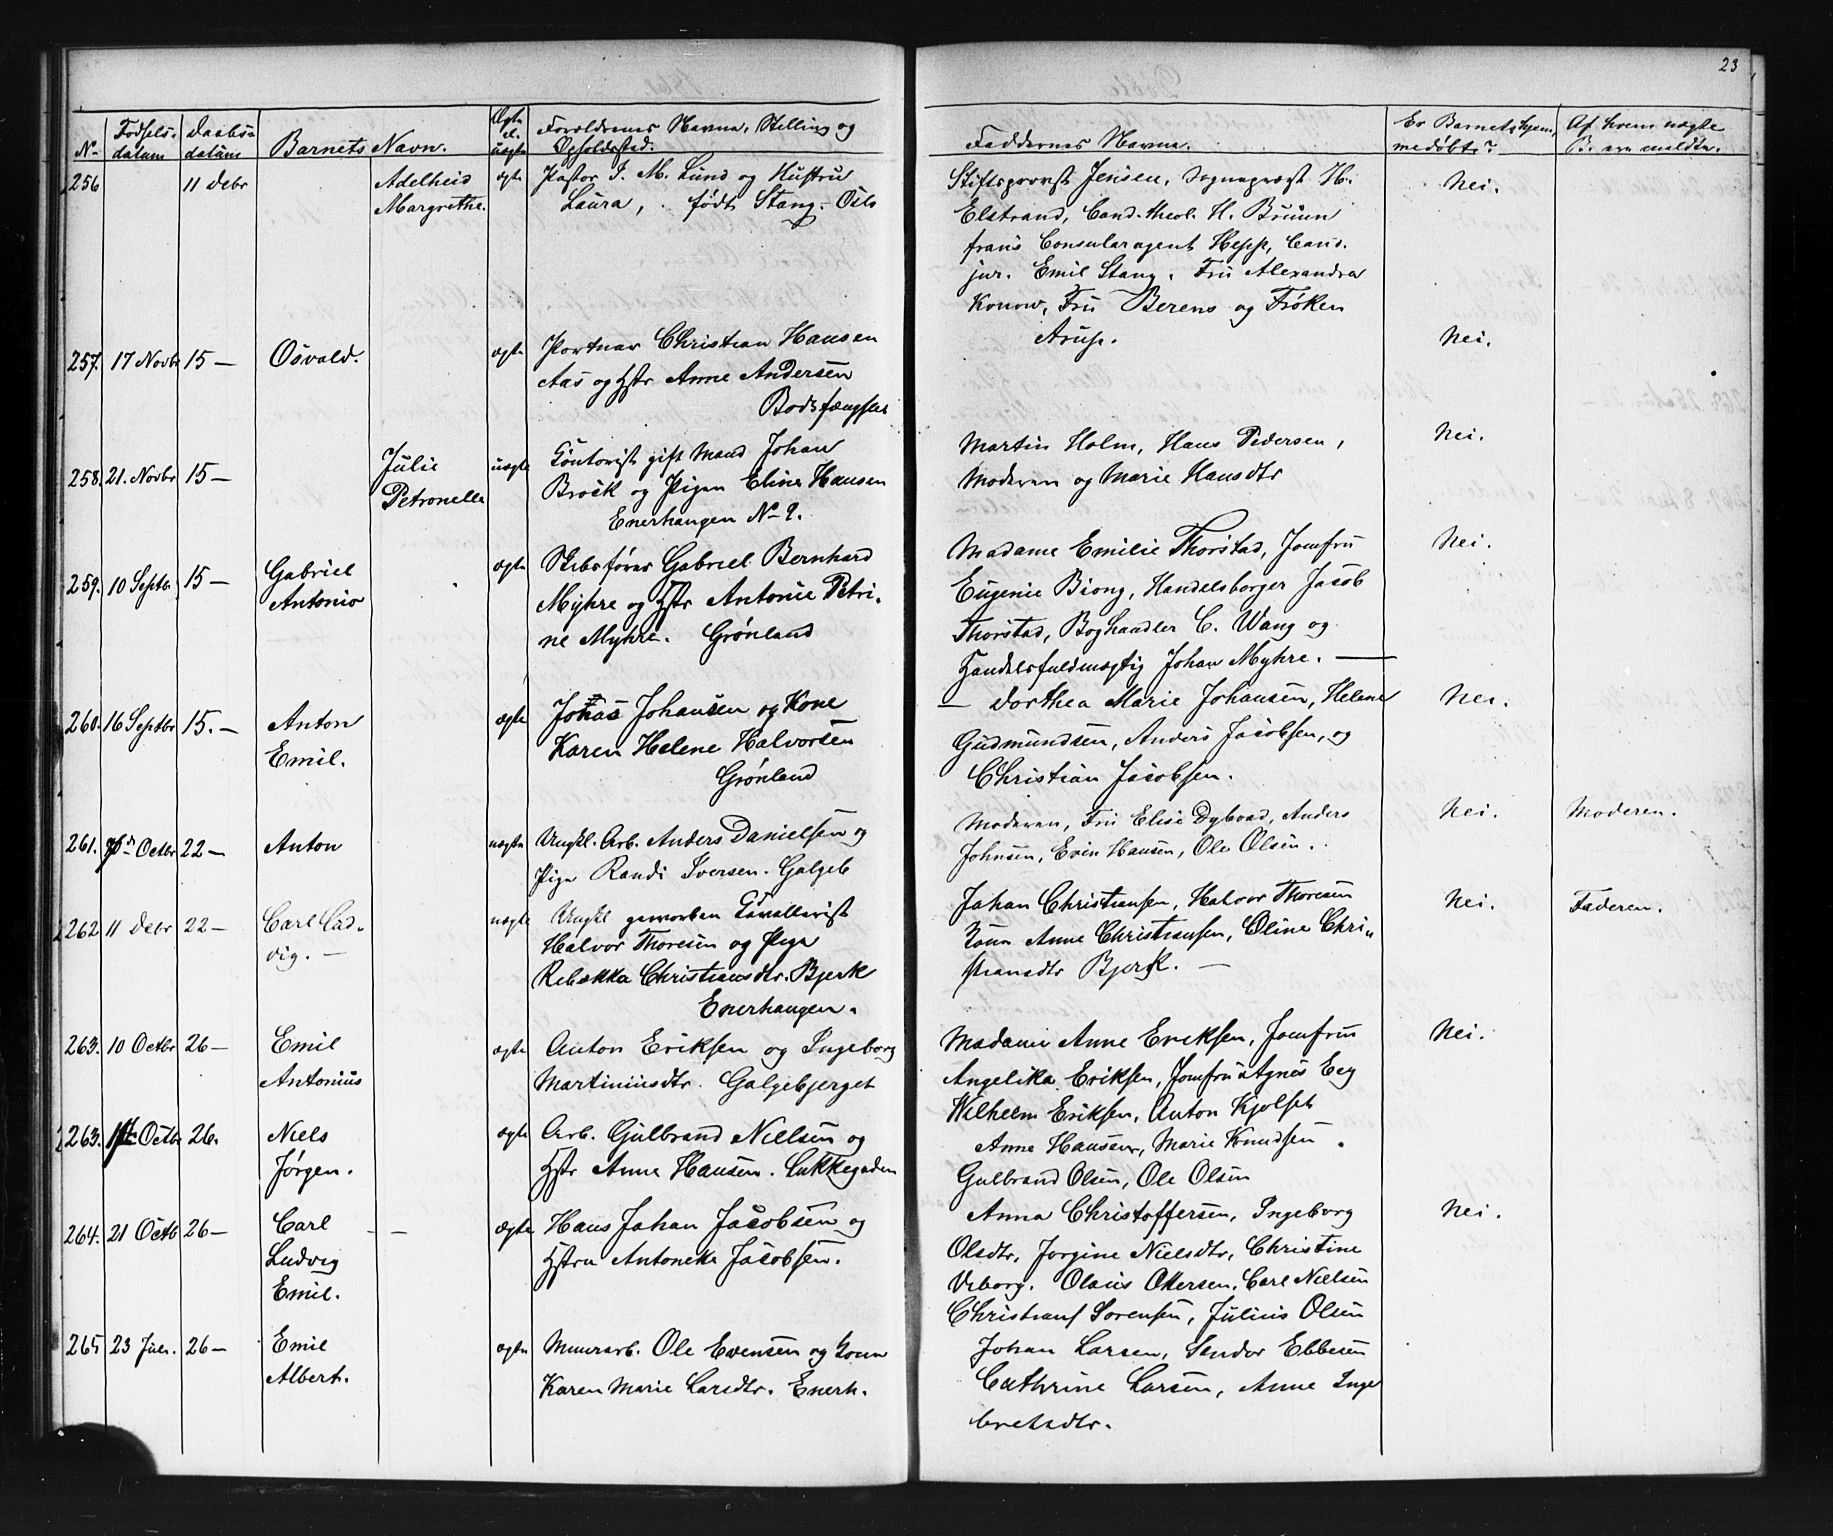 23
No Fødsels- datum Daabs- datum Barnets Navn. Ægte el. uægte Forældrenes Navne, Stilling og Opholdssted. Faddernes Navne. Er Barnet hjemmedøbt? Af hvem uægte B. ere meldte.
256 11 Debr Adelheid ægte Pastor J. M. Lund og Hustru
Margrethe. Laura, født Stang - Oslo
Stiftsprovst Jensen, Sognepræst H. Nei.
Elstrand, Cand. theol. H. Bruun
frans Consularagent Hepp, Cand.
jur. Emil Stang, Fru Alexandra
Konow, Fru Berens og Frøken
Arup.
257. 17 Novbr 15 — Osvald. ægte Portner Christian Hansen Nei.
Aas og Hstr Anne Andersen
Bodsfængslet
258. 21. Novbr 15 — Julie uægte Contorist gift Mand Johan
Petronelle Brock og Pigen Eline Hansen
Enerhaugen No 2.
Martin Holm, Hans Pedersen, Nei.
Moderen og Marie Hansdtr
259. 10 Septbr 15 — Gabriel ægte Skibsfører Gabriel Bernhard
Antonio Myhre og Hstr Antonie Petri-
ne Myhre. Grønland
Madame Emilie Thorstad, Jomfru Nei.
Eugenie Biong, Handelsborger Jacob
Thorstad, Boghandler C. Wang og
Handelsfuldmægtig Johan Myhre. —
260. 16 Septbr 15. — Anton ægte Johansen og Kone
Emil. Karen Helene Halvorsen
Grønland
— Dorthea Marie Johansen, Helene Nei.
Gudmundsen, Anders Jacobsen, og
Christian Jacobsen.
261. Octbr 22 — Anton uægte Ungkl. Arb. Anders Danielsen og
Pige Randi Iversen. Galgeb
Moderen, Fru Elise Dybvad, Anders Nei. Moderen.
Johnsen, Even Hansen, Ole Olsen.
262 11 Debr 22 — Carl Lud- uægte Ungkl geworben Cavallerist
vig. — Halvor Thoresen og Pige
Rebekka Christiansdtr. Bjerk
Enerhaugen.
Johan Christiansen, Halvor Thoresen Nei. Faderen.
Kone Anne Christiansen, Oline Chri-
stiansdtr Bjerk. —
263. 10 Octbr 26 — Emil ægte Anton Eriksen og Ingeborg
Antonius Martiniusdtr. Galgebjerget
Madame Anne Eriksen, Jomfru Nei.
Angelika Eriksen, Jomfru Agnes Eeg
Wilhelm Eriksen, Anton Kjølset
263. Octbr 26. Niels ægte Arb. Gulbrand Nielsen og
Jørgen. Hstr Anne Hansen. Lakkegaden
Anne Hansen, Marie Knudsen.
Gulbrand Olsen, Ole Olsen
264. 21 Octb 26 — Carl — — ægte Hans Johan Jacobsen og
Ludvig Hstru Antoneta Jacobsen.
Emil.
Anna Christoffersen, Ingeborg Nei.
Olsdtr, Jorgine Nielsdtr, Christine
Viborg. Olaus Ottersen, Carl Nielsen
Sørensen, Julius Olsen
265 23 Juli. 26 — Emil ægte Murarb. Ole Evensen og Kone
Albert. Karen Marie Larsdtr. Enerh.
Johan Larsen, Sendor Ebbesen
Cathrine Larsen, Anne Inge
bretsdtr.